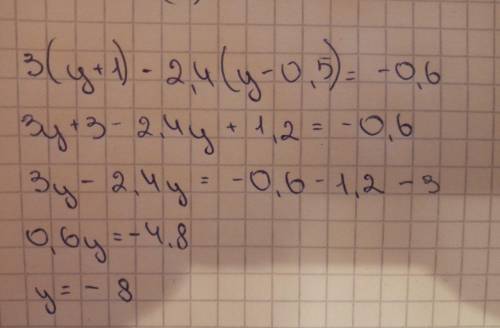 3(y+1) - 2,4(y-0,5) = -0,6
3y+3-2,4y+1,2 = -0,6
3y-2,4y = -0,6-1,2-3
0,6y=-4,8
y=-8